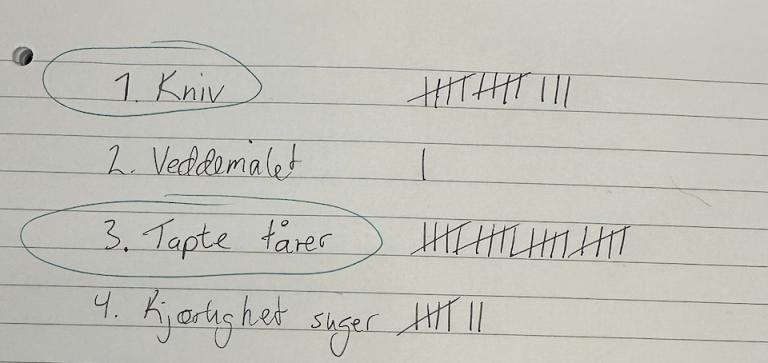 1. Kniv 卌 卌 |||
2. Veddemålet |
3. Tapte tårer 卌 卌 卌 卌
4. Kjærlighet suger 卌 ||